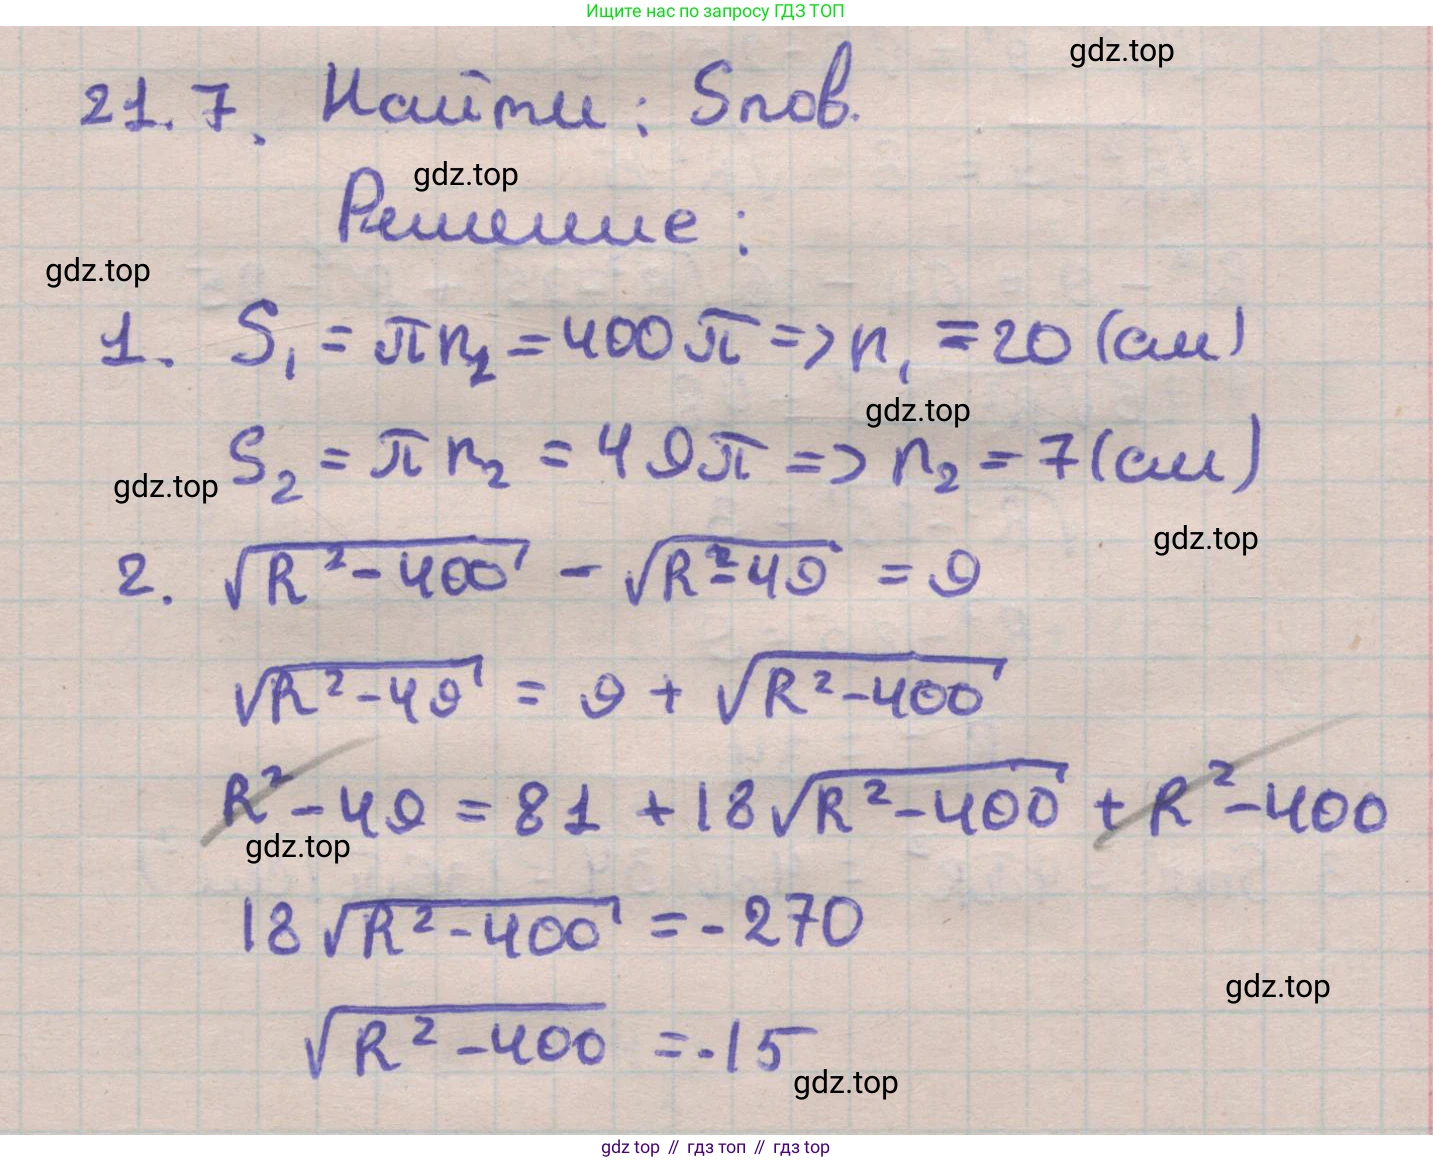 Ищите нас по запросу ГДЗ ТОП
gdz.top
21.7. Найти: Sпов.
gdz.top
Решение:
gdz.top
1. S₁ = πr₂ = 400π => r₁ = 20 (см)
gdz.top
S₂ = πr₂ = 49π => r₂ = 7 (см)
gdz.top
gdz.top
2. √(R² - 400) - √(R² - 49) = 9
√(R² - 49) = 9 + √(R² - 400)
R² - 49 = 81 + 18√(R² - 400) + R² - 400
gdz.top
18√(R² - 400) = -270
gdz.top
√(R² - 400) = -15
gdz.top
gdz top // гдз топ // gdz top